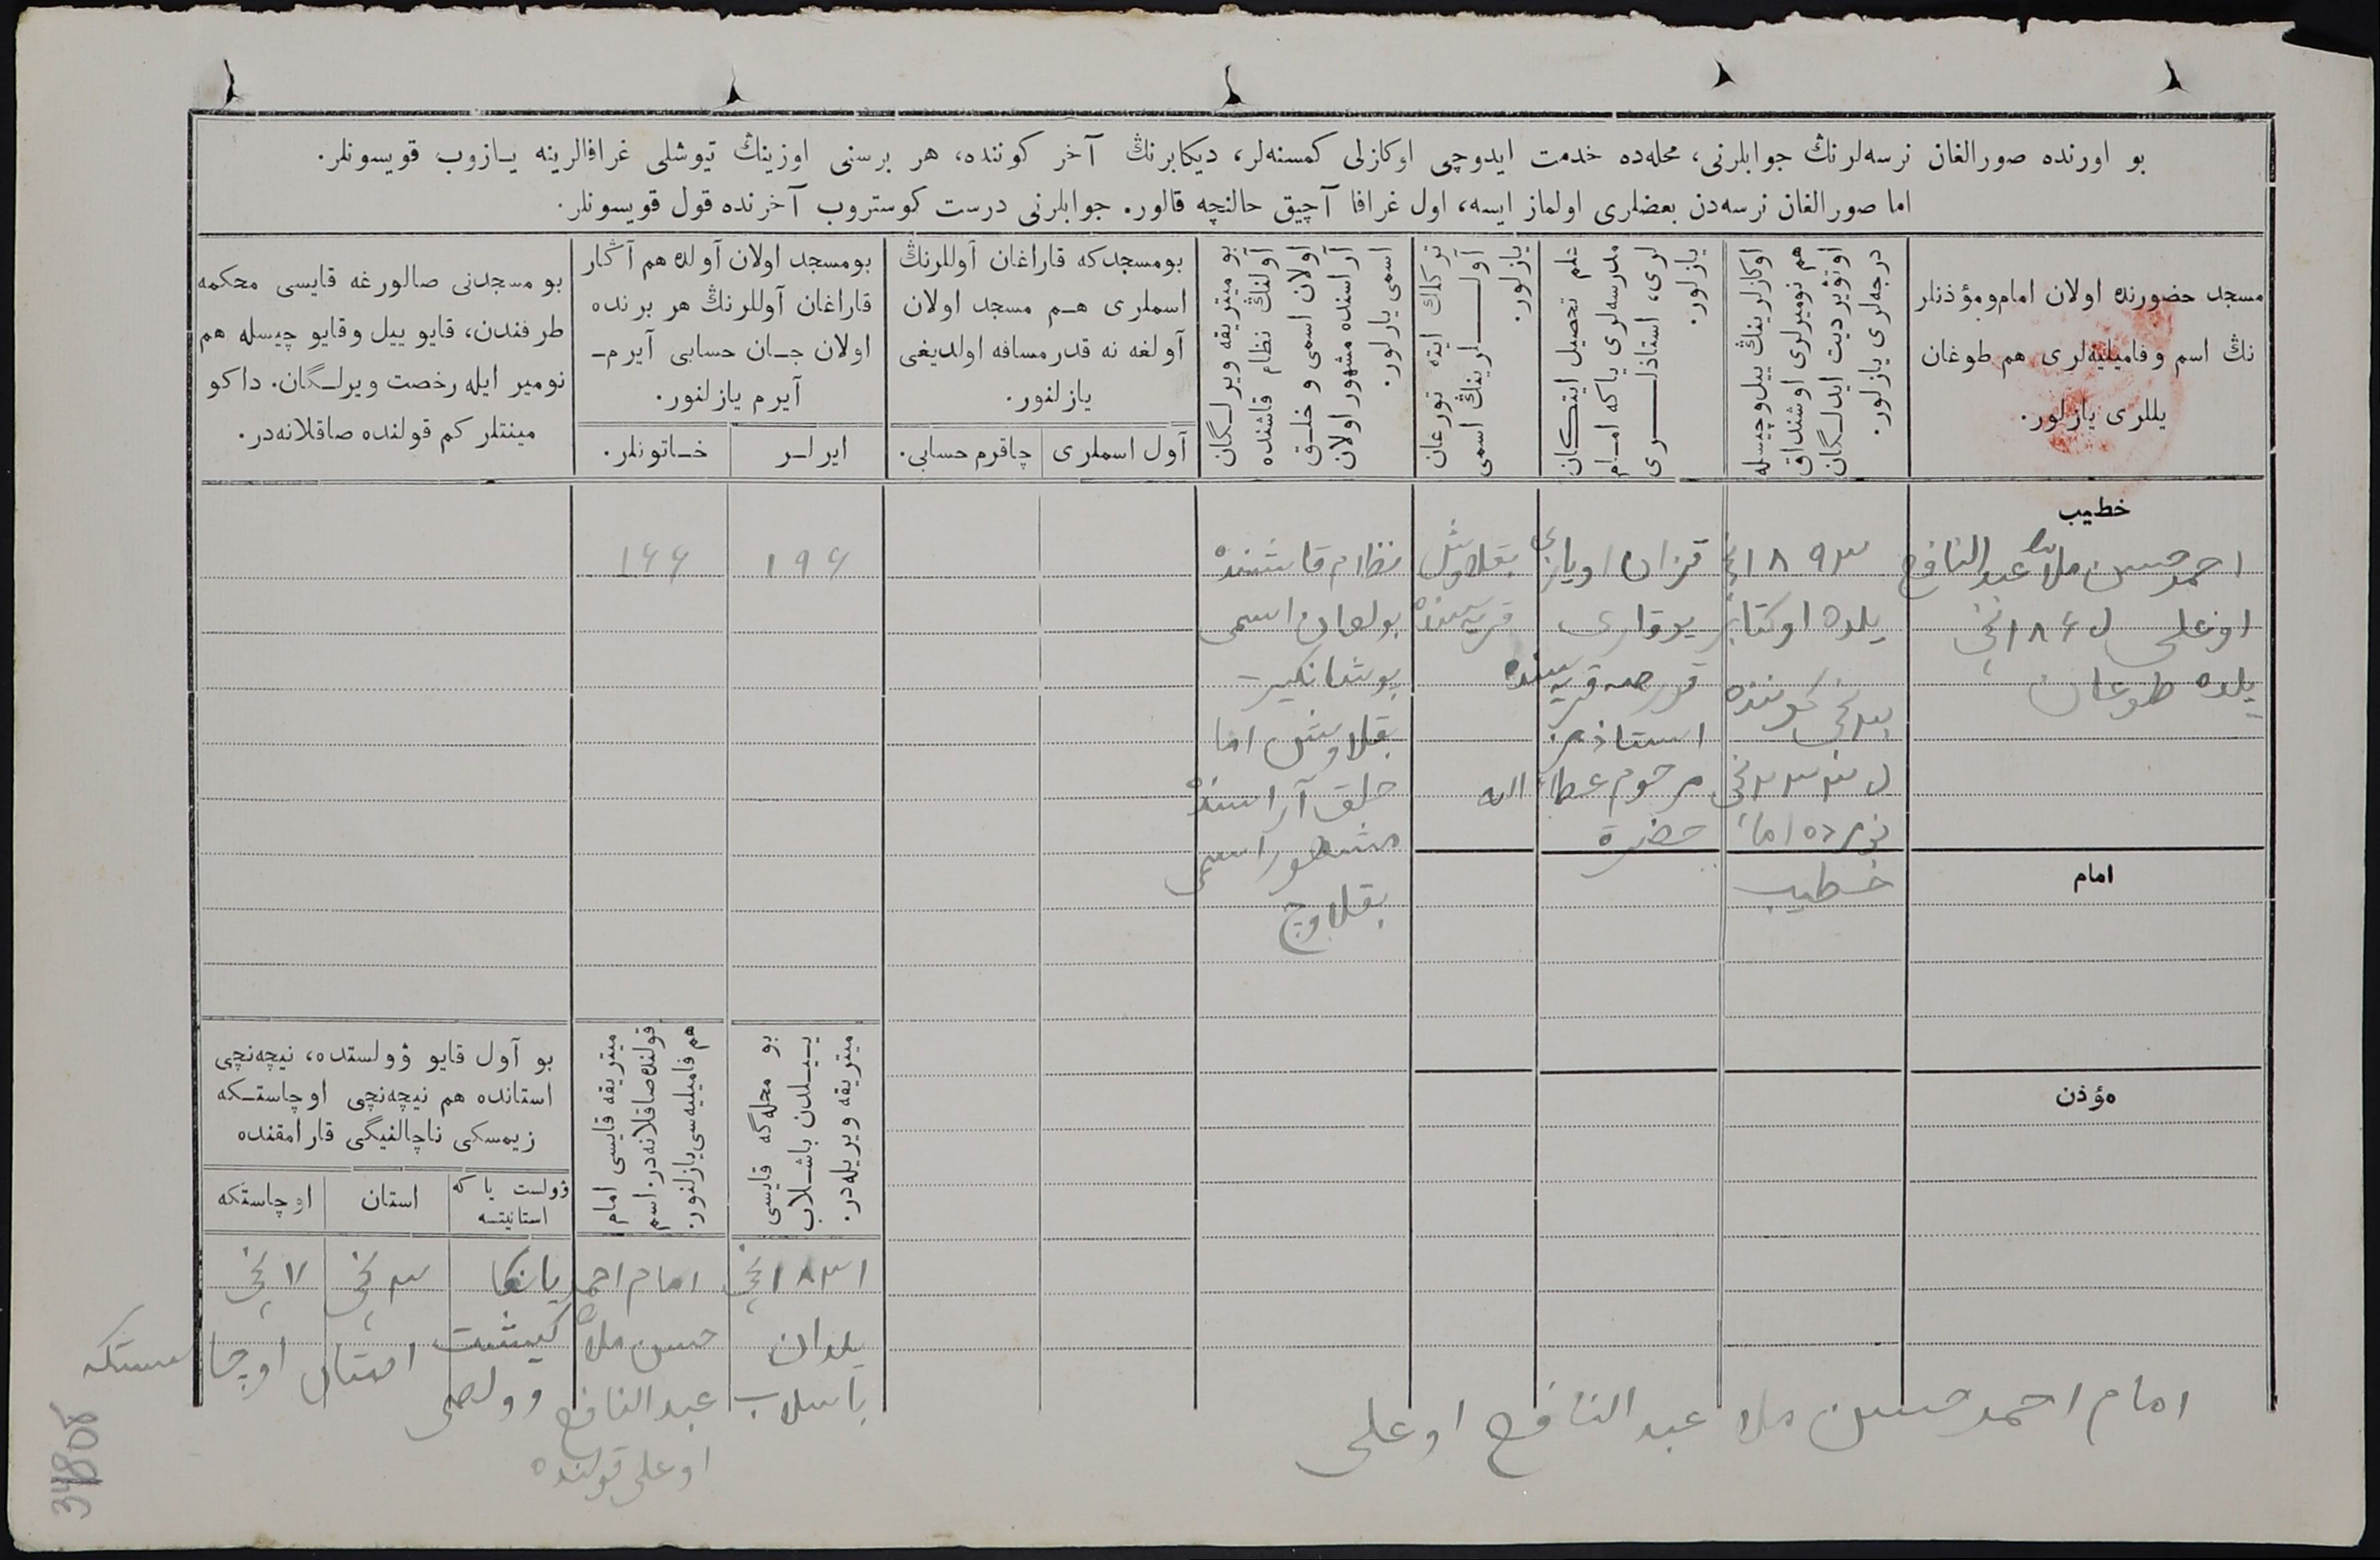 بو اورنده صورالغان نرسه‌لرنڭ جوابلرنی، محله‌ده خدمت ایدوچی اوکازلی کمسنه‌لر، دیکابرنڭ آخر کوننده، هر برسنی اوزینڭ تیوشلی غرافالرینه یازوب قویسونلر.
اما صورالغان نرسه‌دن بعضلری اولماز ایسه، اول غرافا آچیق حالنچه قالور. جوابلرنی درست کوستروب آخرنده قول قویسونلر.
مسجد حضورنده اولان امام و مؤذنلر
نڭ اسم و فامیلیه‌لری هم طوغان
یللری یازلور.
اوکازلرینڭ ییل و چیسله
هم نومیرلری اوشنداق
اوتویردیت ایدلگان
درجه‌لری یازلور.
علم تحصیل ایتکان
مدرسه‌لری یاکه امام
لری، استاذلری
یازلور.
ترکلك ایته تورغان
آوللرینڭ اسمی
یازلور.
بو میتریقه ویرلگان
آولنڭ نظام قاشنده
اولان اسمی و خلق
آراسنده مشهور اولان
اسمی یازلور.
بو مسجدکه قاراغان آوللرنڭ
اسملری هم مسجد اولان
آولغه نه قدر مسافه اولدیغی
یازلنور.
آول اسملری
چاقرم حسابی.
بو مسجد اولان آولده هم آڭار
قاراغان آوللرنڭ هر برنده
اولان جان حسابی آیرم-
آیرم یازلنور.
ایرلر
خاتونلر.
بو مسجدنی صالورغه قایسی محکمه
طرفندن، قایو ییل و قایو چیسله هم
نومیر ایله رخصت ویرلگان. داکو
مینتلر کم قولنده صاقلانه‌در.
خطیب
احمدحسین ملا عبدالنافع
اوغلی
یلده طوغان
۱۸۹۳نچی
یلده اوکتابر
کوننده
امام
خطیب
قزان اویازی
قریه‌سنده
استاذم
مرحوم عطاء الله
حضرة
بقلاوش
قریه‌سنده
نظام قاشنده
بولغان اسمی
بقلاوش اما
خلق آراسنده
مشهور اسمی
بقلاوچ
۱۹۶
۱۶۶
امام
مؤذن
بو محله‌گه قایسی
ییلدن باشلاب
میتریقه ویریله‌در.
میتریقه قایسی امام
قولنده صاقلانه‌در: اسم
هم فامیلیه‌سی یازلنور.
بو آول قایو ؤولستده، نیچه‌نچی
استانده هم نیچه‌نچی اوچاستکه
زیمسکی ناچالنیگی قارامقنده
ؤولست یا که
استانیتسه
استان
اوچاستکه
۱۸۳۱نچی
یلدان
باشلاب
امام احمد
حسین ملا
عبدالنافع
اوغلی قولنده
۳نچی
استان
۷نچی
اوچاستکه
امام احمدحسین ملا عبدالنافع اوغلی